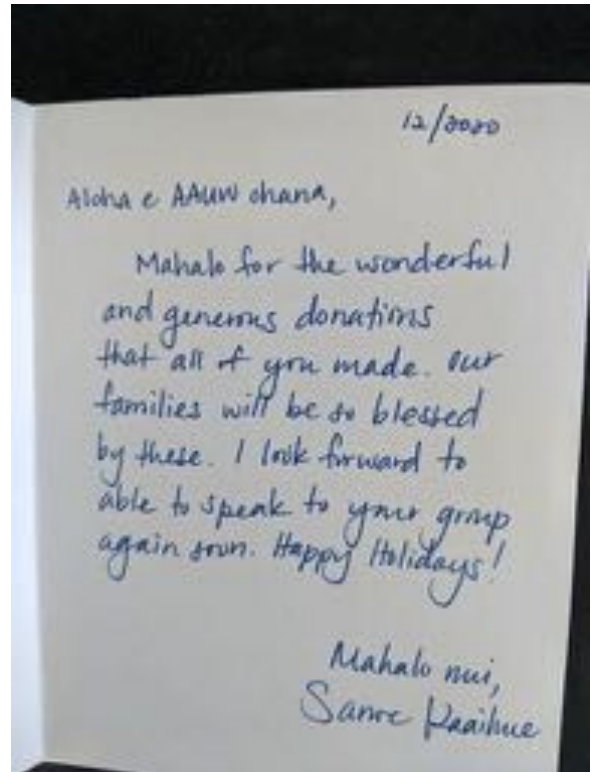 12/2020
Aloha e AAUW ohana,
Mahalo for the wonderful
and generous donations
that all of you made. Our
families will be so blessed
by these. I look forward to
able to speak to your group
again soon. Happy Holidays!
Mahalo nui,